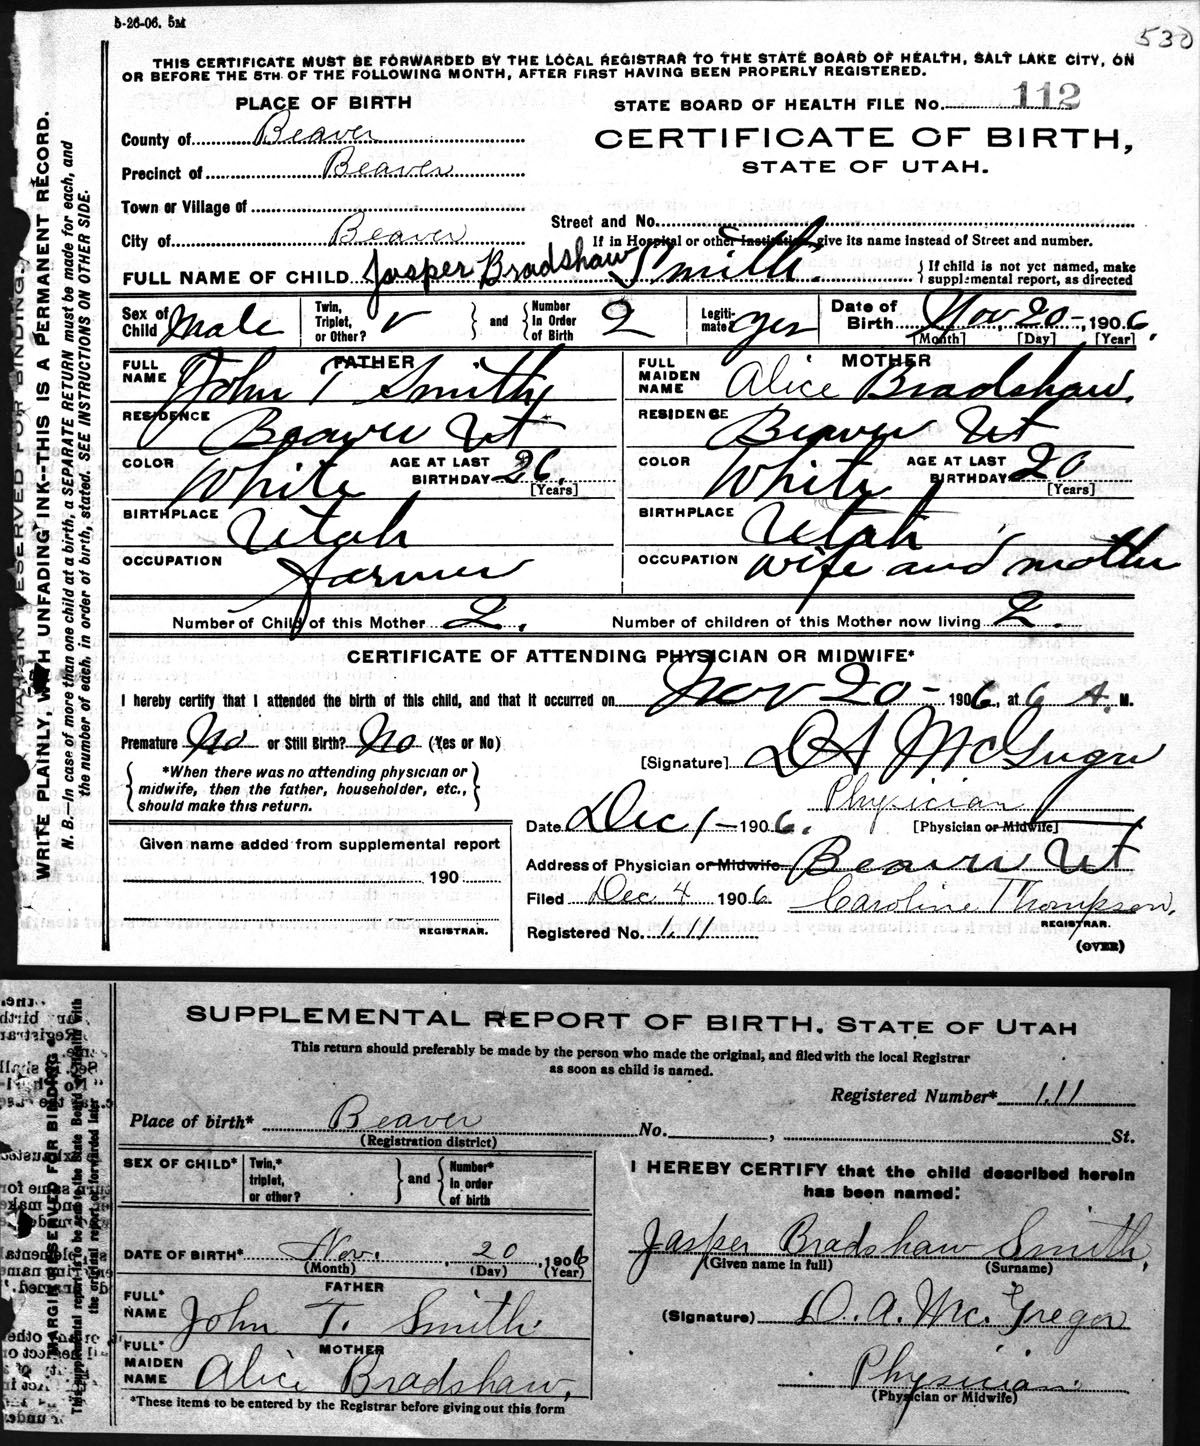 5-26-06. 5M
530
THIS CERTIFICATE MUST BE FORWARDED BY THE LOCAL REGISTRAR TO THE STATE BOARD OF HEALTH, SALT LAKE CITY, ON
OR BEFORE THE 5TH OF THE FOLLOWING MONTH, AFTER FIRST HAVING BEEN PROPERLY REGISTERED.
PLACE OF BIRTH
STATE BOARD OF HEALTH FILE No. 112
County of Beaver
CERTIFICATE OF BIRTH,
STATE OF UTAH.
Precinct of Beaver
Town or Village of
Street and No.
City of Beaver
If in Hospital or other Institution, give its name instead of Street and number.
FULL NAME OF CHILD Jasper Bradshaw Smith. { If child is not yet named, make
supplemental report, as directed
Sex of Child Male
Twin, Triplet, or Other? } and { Number In Order of Birth 2
Legitimate? yes
Date of Birth Nov 20- 1906.
[Month] [Day] [Year]
FATHER
FULL NAME John T Smith
RESIDENCE Beaver Ut
COLOR White AGE AT LAST BIRTHDAY 26. [Years]
BIRTHPLACE Utah
OCCUPATION farmer
MOTHER
FULL MAIDEN NAME Alice Bradshaw.
RESIDENCE Beaver Ut
COLOR White AGE AT LAST BIRTHDAY 20 [Years]
BIRTHPLACE Utah
OCCUPATION wife and mother
Number of Child of this Mother 2. Number of children of this Mother now living 2.
CERTIFICATE OF ATTENDING PHYSICIAN OR MIDWIFE*
I hereby certify that I attended the birth of this child, and that it occurred on Nov 20- 1906, at 6 A. M.
Premature No or Still Birth? No (Yes or No)
{ *When there was no attending physician or
midwife, then the father, householder, etc.,
should make this return. }
[Signature] D A McGregor
Physician
[Physician or Midwife]
Date Dec 1- 1906.
Address of Physician or Midwife Beaver Ut
Filed Dec 4 1906 Caroline Thompson.
REGISTRAR.
Registered No. 111
(OVER)
Given name added from supplemental report
190
REGISTRAR.
MARGIN RESERVED FOR BINDING
WRITE PLAINLY, WITH UNFADING INK--THIS IS A PERMANENT RECORD.
N. B.—In case of more than one child at a birth, a SEPARATE RETURN must be made for each, and
the number of each, in order of birth, stated. SEE INSTRUCTIONS ON OTHER SIDE.
SUPPLEMENTAL REPORT OF BIRTH. STATE OF UTAH
This return should preferably be made by the person who made the original, and filed with the local Registrar
as soon as child is named.
Registered Number* 111
Place of birth* Beaver No. , St.
(Registration district)
SEX OF CHILD*
Twin,* triplet, or other? } and { Number* in order of birth
DATE OF BIRTH* Nov. 20, 1906
(Month) (Day) (Year)
FATHER
FULL* NAME John T. Smith.
MOTHER
FULL* MAIDEN NAME Alice Bradshaw.
*These items to be entered by the Registrar before giving out this form
I HEREBY CERTIFY that the child described herein
has been named:
Jasper Bradshaw Smith,
(Given name in full) (Surname)
(Signature) D. A. McGregor
Physician.
(Physician or Midwife)
MARGIN RESERVED FOR BINDING
This supplemental report is to be sent to the State Board of Health with
the original report or forwarded later